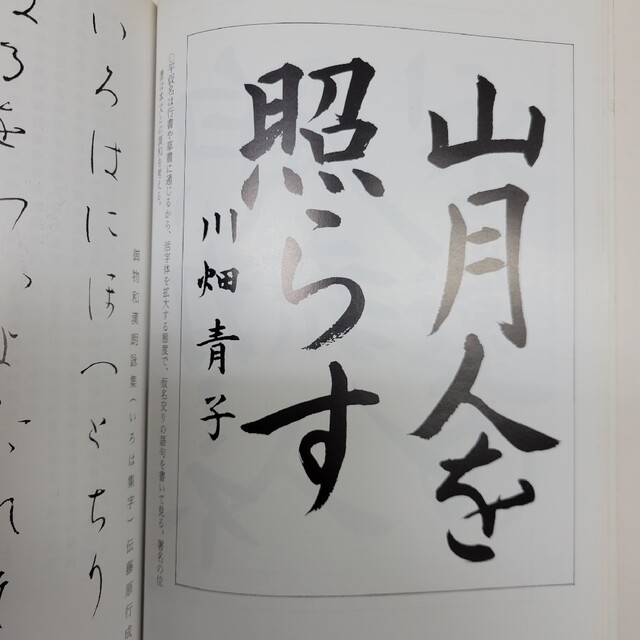 山月人を
照らす
川畑青子
◎平仮名は行書や草書に通じるから、活字体を拡大する態度で、仮名交りの語句を書いて見る。署名の位
置は本文との調和を考える。
御物和漢朗詠集(いろは集字)伝藤原行成
いろはにほへとちり